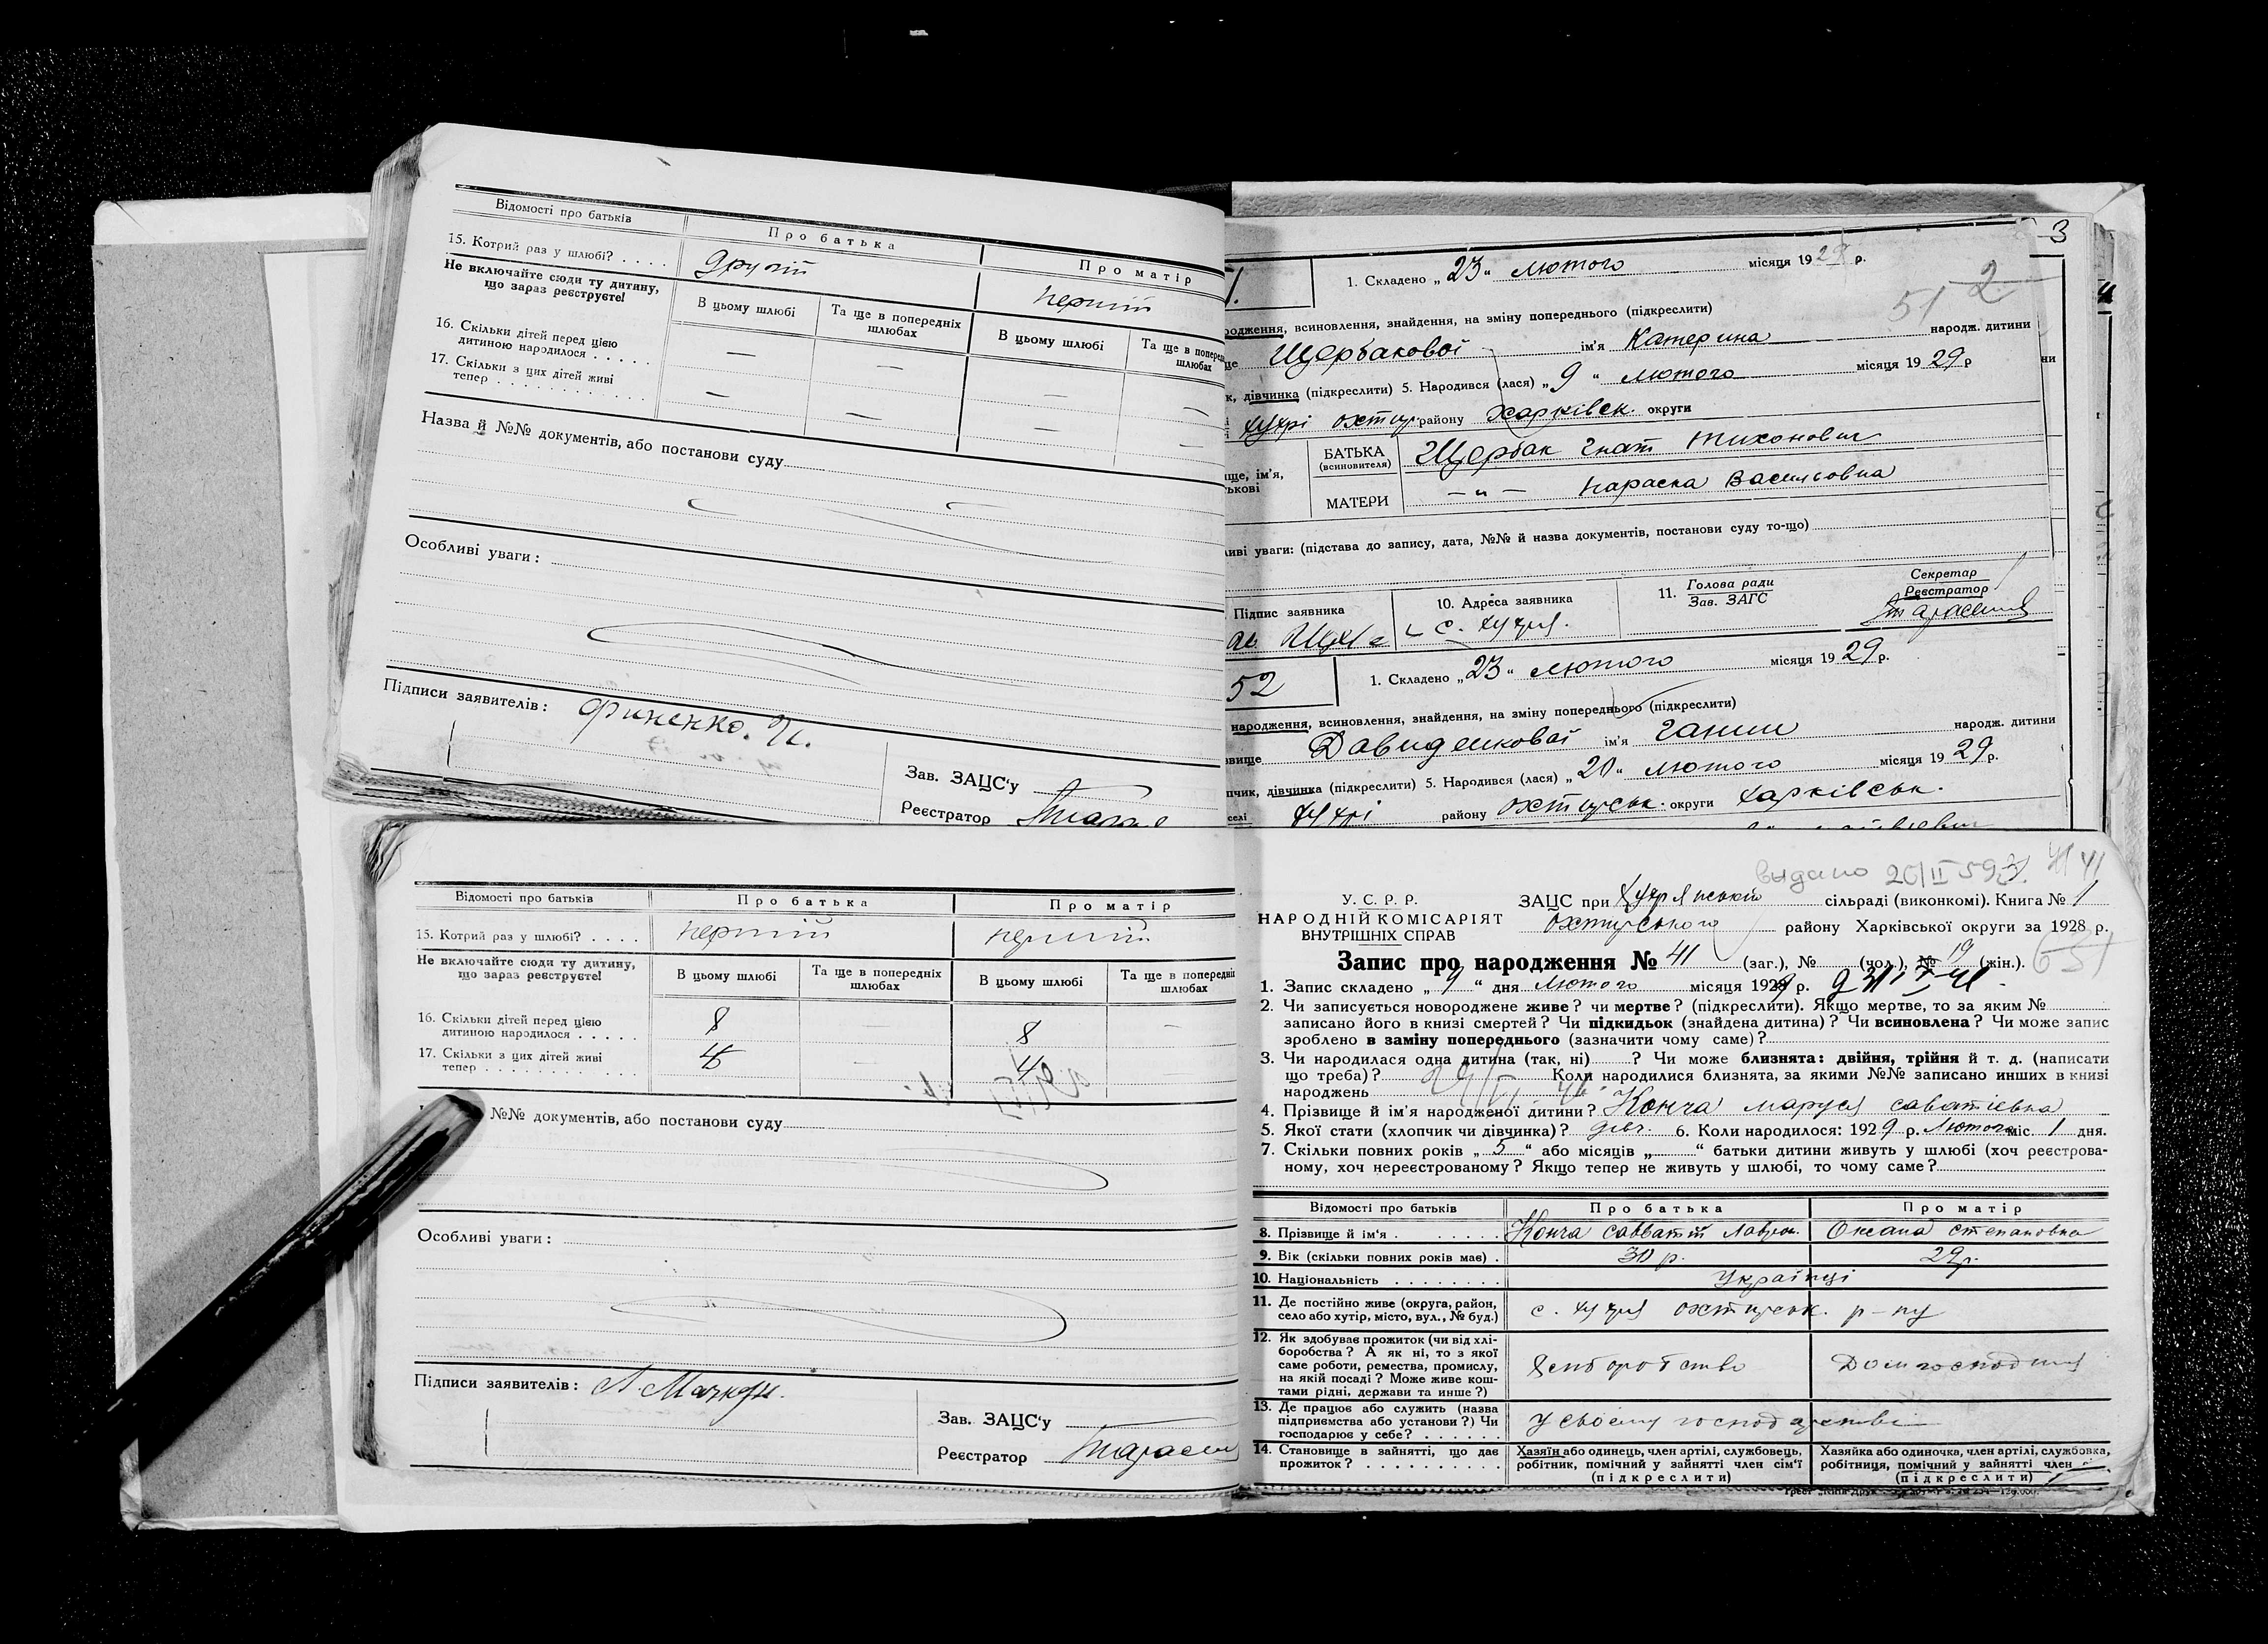 Відомості про батьків Про батька Про матір
15. Котрий раз у шлюбі? . . . . другий перший
Не включайте сюди ту дитину,
що зараз реєструєте!
В цьому шлюбі Та ще в попередніх шлюбах В цьому шлюбі Та ще в попередніх шлюбах
16. Скільки дітей перед цією
дитиною народилося . . . . . — — — —
17. Скільки з цих дітей живі
тепер . . . . . . . . . . — — — —
Назва й №№ документів, або постанови суду
Особливі уваги:
Підписи заявителів: Финенко. И.
Зав. ЗАЦС'у
Реєстратор
3
1. Складено „23“ лютого місяця 1929 р.
51 2
народження, всиновлення, знайдення, на зміну попереднього (підкреслити)
Щербакової ім'я Катерина народж. дитини
дівчинка (підкреслити) 5. Народився (лася) „9“ лютого місяця 1929 р
Хухрі Охтир. району Харківськ. округи
БАТЬКА
(всиновителя) Щербак Гнат Тихонович
МАТЕРИ — „ — Параска Васильовна
уваги: (підстава до запису, дата, №№ й назва документів, постанови суду то-що)
Підпис заявника 10. Адреса заявника 11. Голова ради
Зав. ЗАГС Секретар
Реєстратор
с. Хухря.
52 1. Складено „23“ лютого місяця 1929 р.
народження, всиновлення, знайдення, на зміну попереднього (підкреслити)
Давиденкової ім'я Ганни народж. дитини
дівчинка (підкреслити) 5. Народився (лася) „20“ лютого місяця 1929 р.
селі Хухрі району Охтирськ. округи Харківськ.
Відомості про батьків Про батька Про матір
15. Котрий раз у шлюбі? . . . . перший перший
Не включайте сюди ту дитину,
що зараз реєструєте!
В цьому шлюбі Та ще в попередніх шлюбах В цьому шлюбі Та ще в попередніх шлюбах
16. Скільки дітей перед цією
дитиною народилося . . . . . 8 8 —
17. Скільки з цих дітей живі
тепер . . . . . . . . . . 4 — 4 —
№№ документів, або постанови суду
Особливі уваги:
Підписи заявителів:
Зав. ЗАЦС'у
Реєстратор
выдано 20/II 59 41 41
У. С. Р. Р.
НАРОДНІЙ КОМІСАРІЯТ
ВНУТРІШНІХ СПРАВ
ЗАЦС при Хухрянській сільраді (виконкомі). Книга № 1
Охтирського району Харківської округи за 1928 р.
Запис про народження № 41 (заг.), № (чол.), № 19 (жін.).
1. Запис складено „9“ дня лютого місяця 1929 р.
2. Чи записується новороджене живе? чи мертве? (підкреслити). Якщо мертве, то за яким №
записано його в книзі смертей? Чи підкидьок (знайдена дитина)? Чи всиновлена? Чи може запис
зроблено в заміну попереднього (зазначити чому саме)?
3. Чи народилася одна дитина (так, ні) ? Чи може близнята: двійня, трійня й т. д. (написати
що треба)? Коли народилися близнята, за якими №№ записано инших в книзі
народжень
4. Прізвище й ім'я народженої дитини? Конча Маруся Саватіевна
5. Якої стати (хлопчик чи дівчинка)? дівч. 6. Коли народилося: 1929 р. Лютого міс. 1 дня.
7. Скільки повних років „5“ або місяців „ “ батьки дитини живуть у шлюбі (хоч реєстрова-
ному, хоч нереєстрованому? Якщо тепер не живуть у шлюбі, то чому саме?
Відомості про батьків Про батька Про матір
8. Прізвище й ім'я . . . . . . Конча Савватій Лаврен. Оксана Степановна
9. Вік (скільки повних років має) . 30 р. 29 р.
10. Національність . . . . . . . . Українці
11. Де постійно живе (округа, район,
село або хутір, місто, вул., № буд.) с. Хухря Охтирськ. р-ну
12. Як здобуває прожиток (чи від хлі-
боробства? А як ні, то з якої
саме роботи, ремества, промислу,
на якій посаді? Може живе кош-
тами рідні, держави та инше?) Хліборобство Домгосподиня
13. Де працює або служить (назва
підприємства або установи?) Чи
господарює у себе? . . . . . . У своєму господарстві
14. Становище в зайнятті, що дає
прожиток? . . . . . . . . . .
Хазяїн або одинець, член артілі, службовець,
робітник, помічний у зайнятті член сім'ї
(підкреслити)
Хазяйка або одиночка, член артілі, службовка,
робітниця, помічний у зайнятті член
(підкреслити)